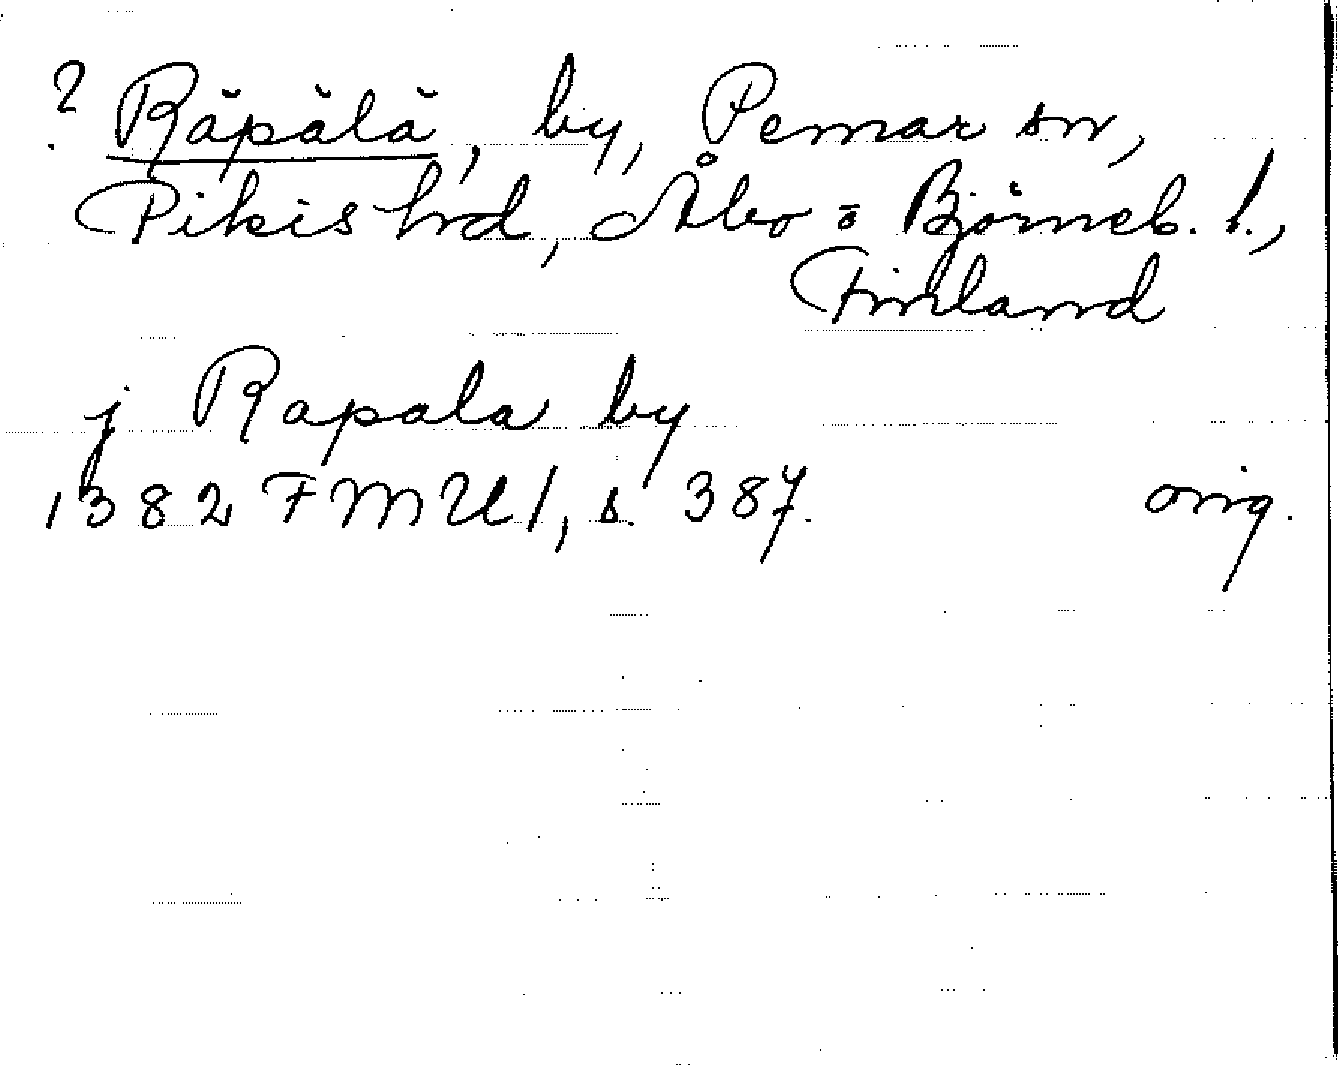 ? Räpälä, by, Pemar sn,
Pikis hrd, Åbo o Björneb. l.,
Finland
j Rapala by
1382 FMU 1, s. 387.
orig.